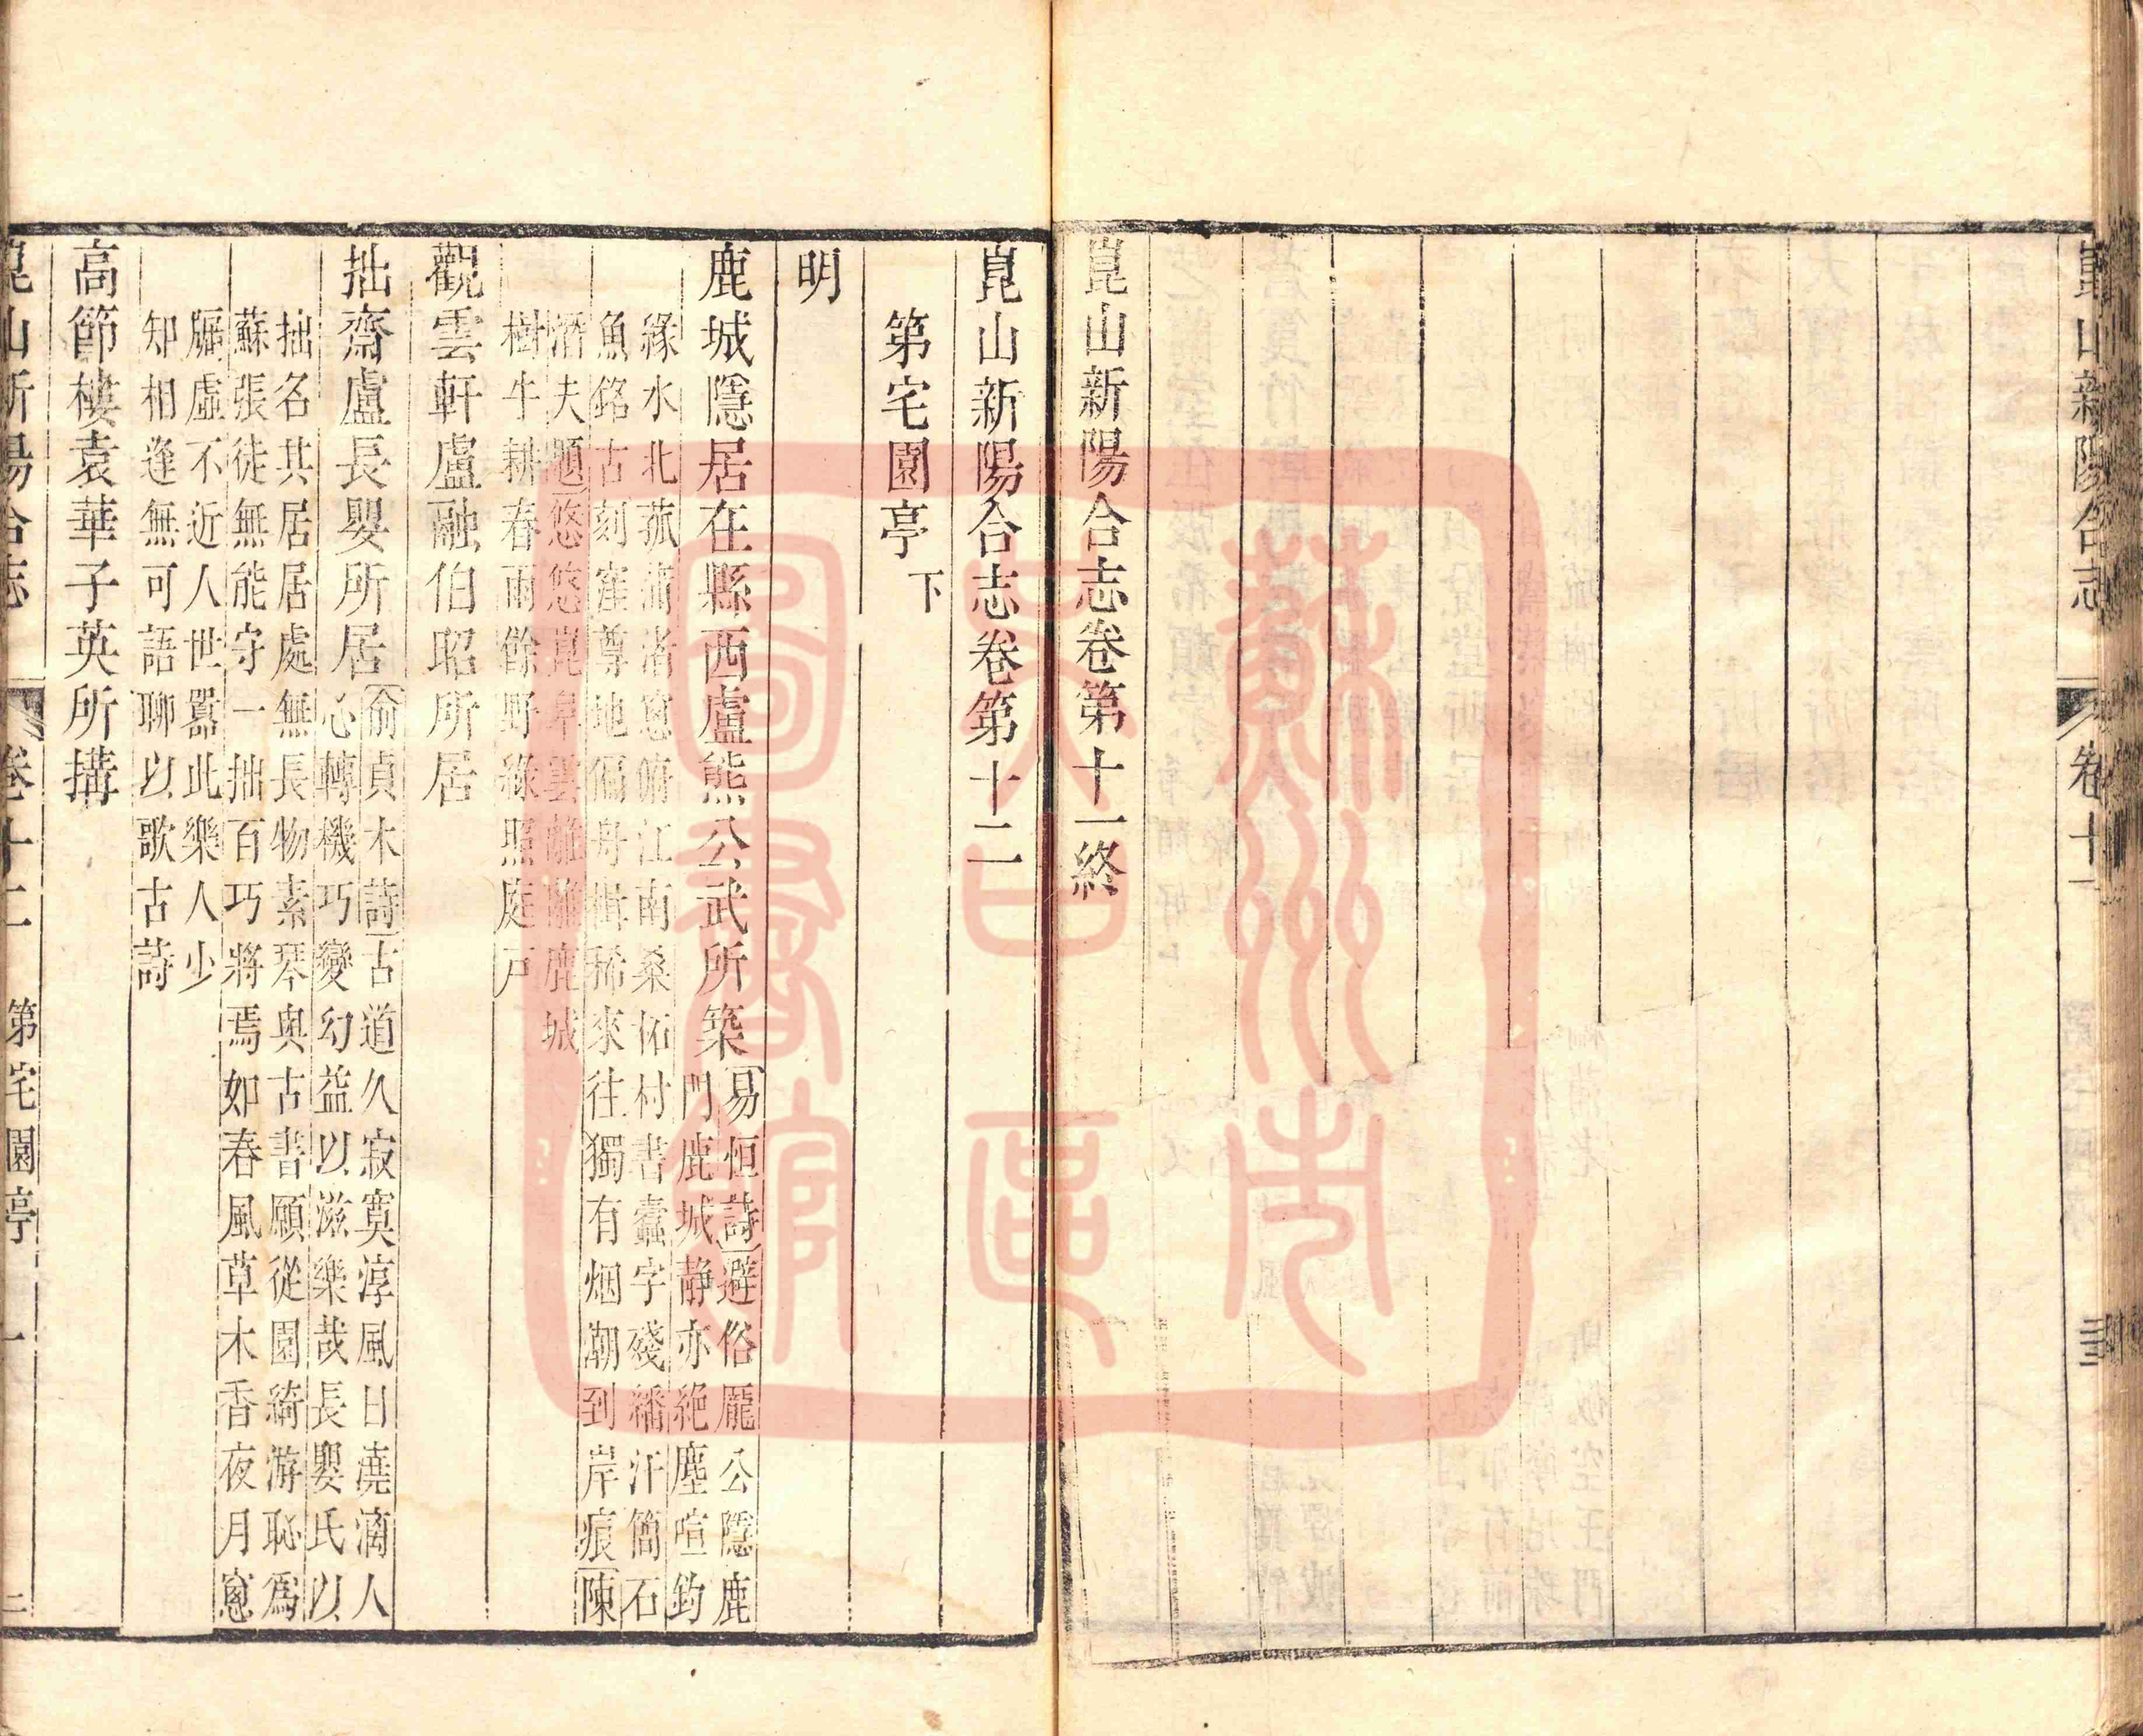 崑山新陽合志 卷十一 三三
崑山新陽合志卷第十一終
崑山新陽合志卷第十二
第宅園亭下
明
鹿城隱居在縣西盧熊公武所築易恒詩避俗龎公隱鹿
門鹿城靜亦絶塵喧釣
緣水北菰蒲渚窓俯江南桑柘村書蠹字殘繙汗簡石
魚銘古刻窪尊地偏舟楫稀來往獨有烟潮到岸痕陳
潛夫題悠悠崑阜雲離離鹿城
樹牛耕春雨餘野綠照庭戸
觀雲軒盧融伯昭所居
拙齋盧長嬰所居俞貞木詩古道久寂寞淳風日漓人
心轉機巧變幻益以滋樂哉長嬰氏以
拙名其居居處無長物素琴與古書願從園綺游恥爲
蘇張徒無能守一拙百巧將焉如春風草木香夜月窓
牖虛不近人世嚣此樂人少
知相逢無可語聊以歌古詩
高節樓袁華子英所構
崑山新陽合志 卷十二 第宅園亭 一 二
蘇州市
吴中區
圖書館